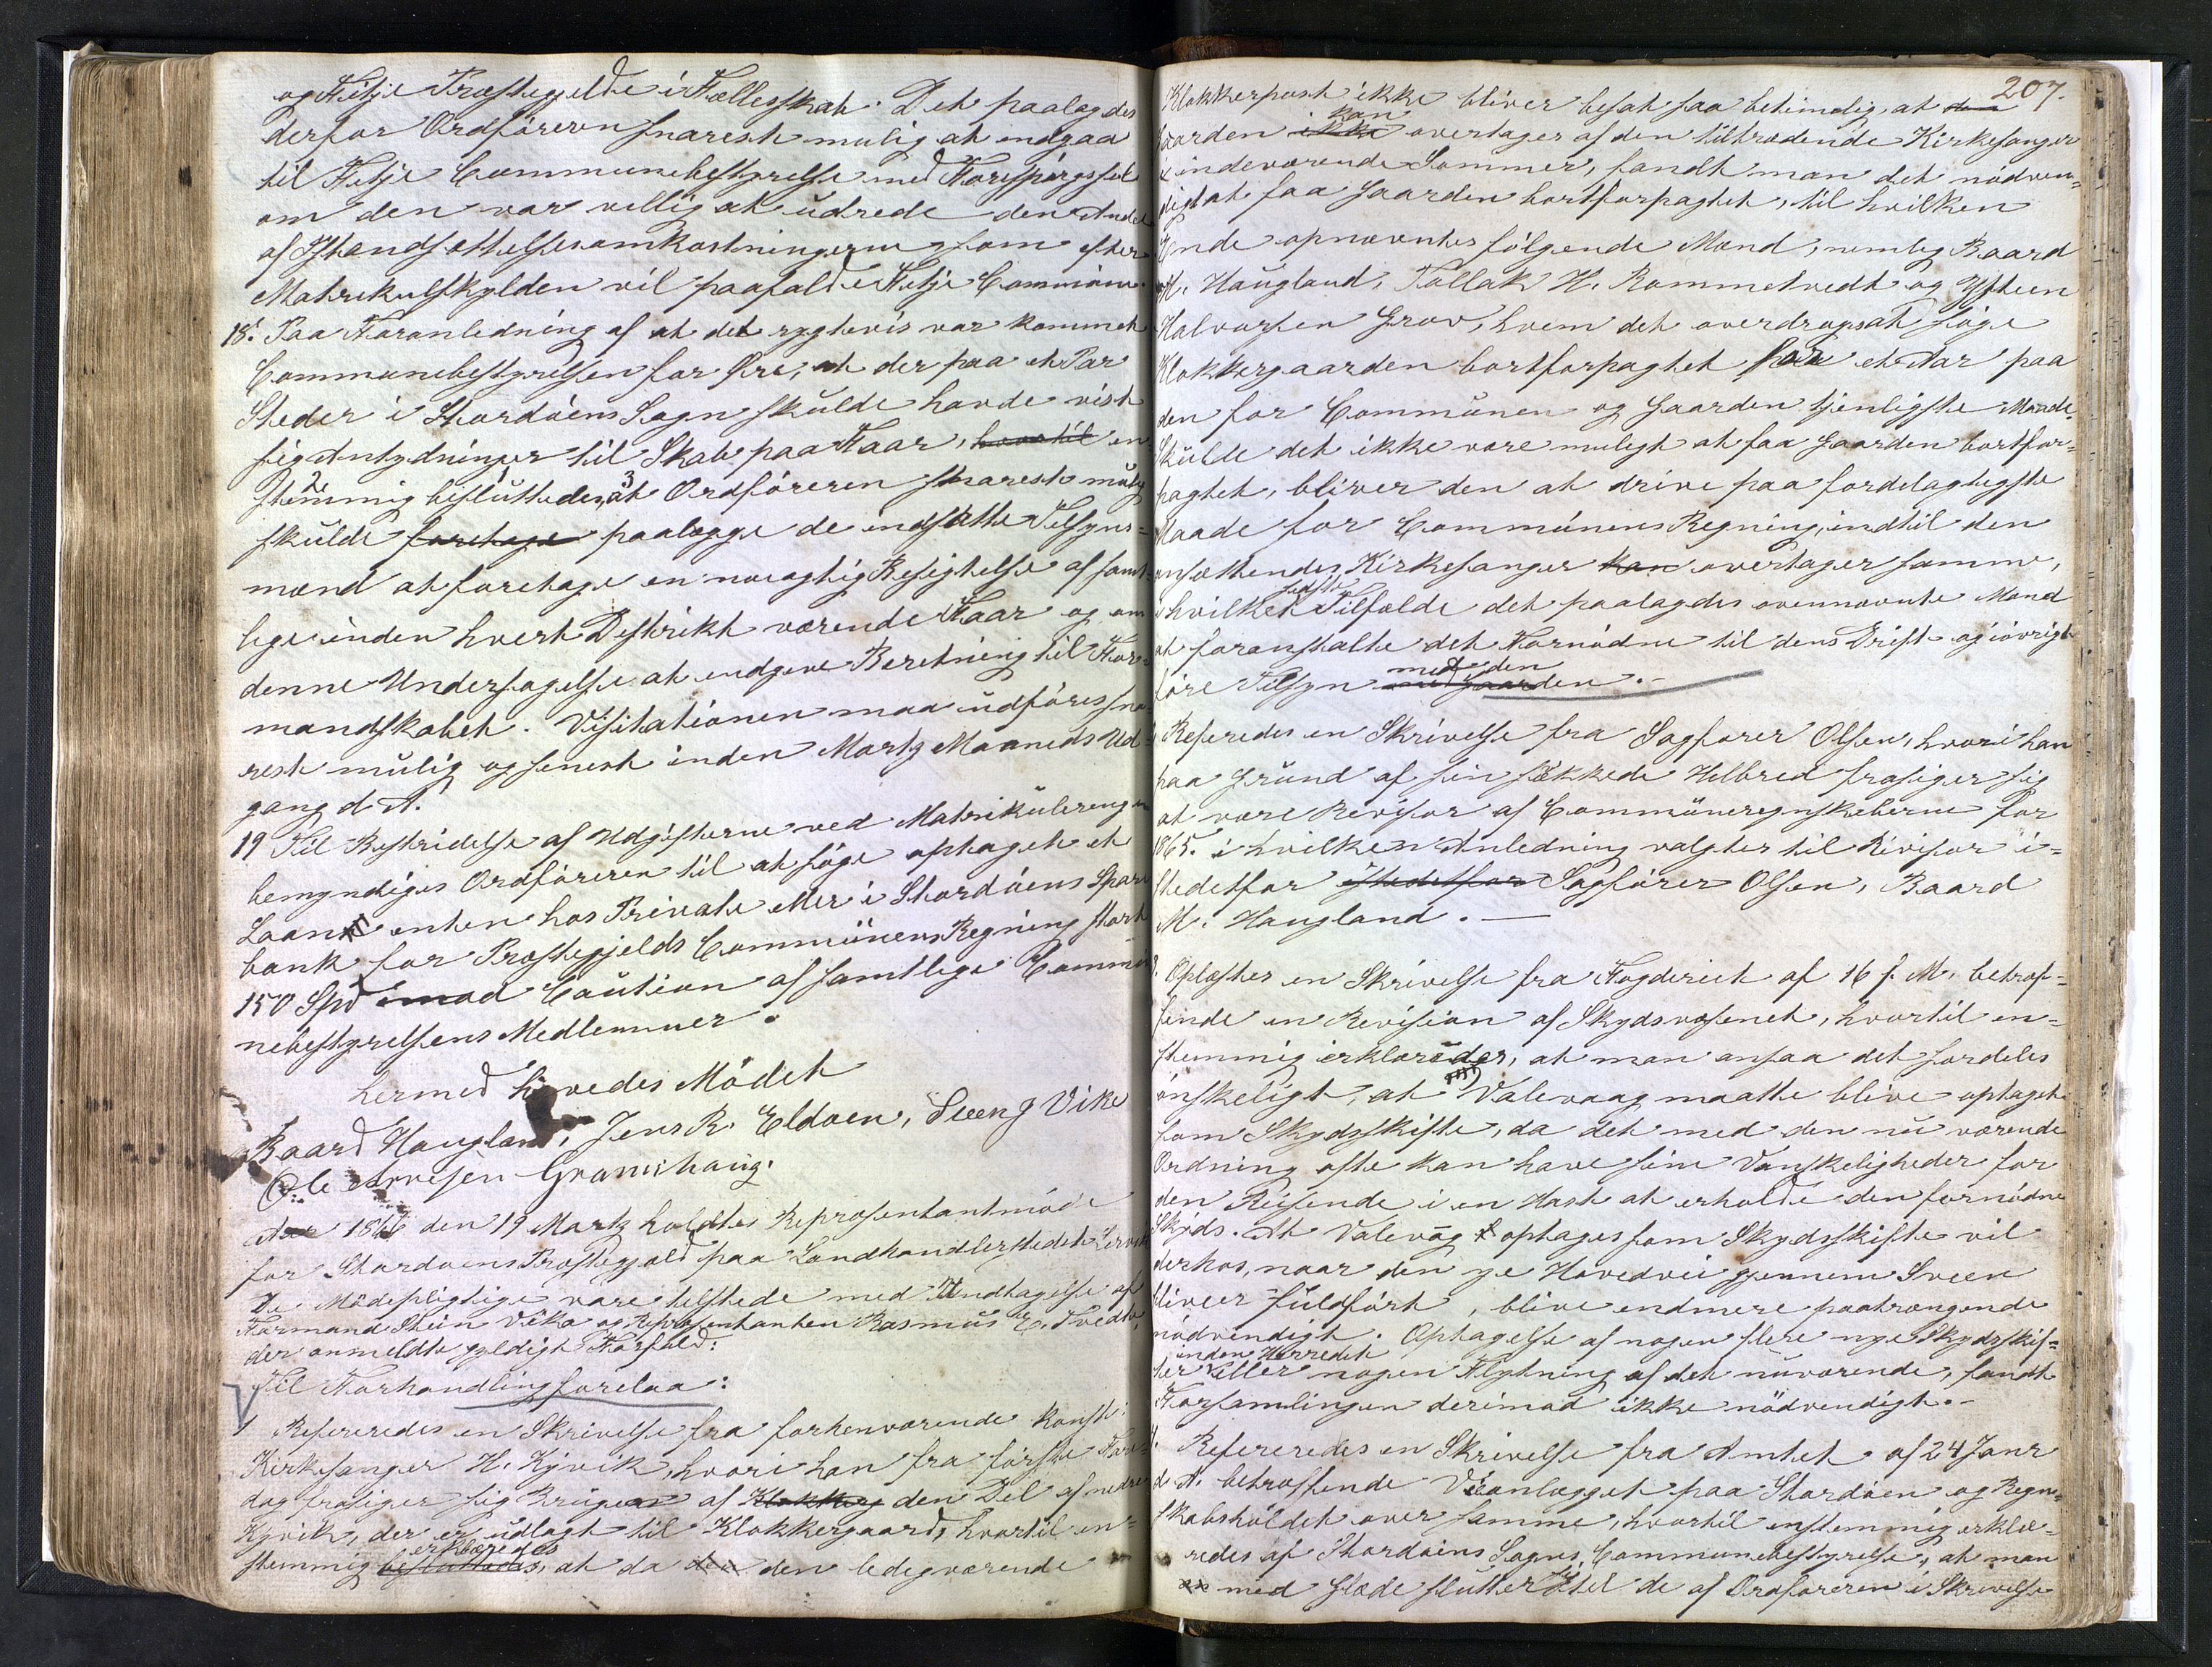 og Fitje Præstegjelde i Fællesskab. Det paalagdes
derfor Ordföreren snarest mulig at indgaa
til Fitje Communebestyrelse med Forespörgssel
om den var villig at udrede den Andel
af Istandsættelsesomkostningerne som efter
Matrikulskylden vil paafalde Fitje Commune.
18. Paa Foranledning af at det rygtevis var kommet
Communebestyrelsen for Öre, at der paa et Par
Steder i Stordöens Sogn skulde havde vist
sig Antydninger til Skab paa Faar, hvortil en
stemmig besluttedes, at Ordföreren snarest mulig
skulde foretage paalægge de indsatte Tilsyns-
mænd at foretage en nöiagtig Besigtelse af samt-
lige inden hvert Distrikt værende Faar og om
denne Undersögelse at indgive Beretning til For-
mandskabet. Visitationen maa udföres sna-
rest mulig og senest inden Martz Maaneds Ud-
gang d. A.
19 Til Bestridelse af Udgifterne ved Matrikuleringen
bemyndiges Ordföreren til at söge optaget et
Laan enten hos Private eller i Stordöens Spare
bank for Præstegjelds Communens Regning stort
150 Spd imod Caution af samtlige Commu-
nebestyrelsens Medlemmer.
Hermed hævedes Mödet
Baard Haugland, Jens R. Eldöen, Sveen J Vike
Ole Arnesen Gramshaug.
Aar 1866 den 19 Martz holdtes Repræsentantmöde
for Stordöens Præstegjeld paa Landhandlerstedet Lervik
De Mödepligtige vare tilstede med Undtagelse af
Formand Stein Vike og Repræsentanten Rasmus E. Tvedte,
der anmeldte gyldigt Forfald:
Til Forhandling forelaa:
1 Refereredes en Skrivelse fra forhenværende konst.
Kirkesanger H. Kyvik, hvori han fra förste Fare-
dag frasiger sig Brugen af Klokkerg den Del af nedre
Kyvik, der er udlagt til Klokkergaard, hvortil en-
erklæredes
stemmig besluttedes, at da den den ledigværende
207.
Klokkerpost ikke bliver besat saa betimelig, at den
kan
Gaarden ikke overtages af den tiltrædende Kirkesanger
i indeværende Sommer, fandt man det nödven-
digt at faa Gaarden bortforpagtet, til hvilken
Ende opnævntes fölgende Mænd, nemlig Baard
M. Haugland, Tollak H. Rommetvedt og Ysteen
Halvorsen Grov, hvem det overdroges at söge
Klokkergaarden bortforpagtet paa et Aar paa
den for Communen og Gaarden tjenligste Maade.
Skulde det ikke være muligt at faa Gaarden bortfor-
pagtet, bliver den at drive paa fordelagtigste
Maade for Communens Regning, indtil den
ansættendes Kirkesanger kan overtager samme,
sidste
i hvilket Tilfælde det paalagdes ovennævnte Mænd
at foranstalte det Fornödne til dens Drift og iövrigt
med den
före Tilsyn med Gaarden.-
Referedes en Skrivelse fra Sagförer Olsen, hvori han
paa Grund af sin svækkede Helbred frasiger sig
at være Revisor af Communeregnskaberne for
1865. i hvilken Anledning valgtes til Revisor i-
stedetfor istedetfor Sagförer Olsen, Baard
M. Haugland. —
Oplæstes en Skrivelse fra Fogderiet af 16 f. M. betræf-
fende en Revision af Skydsvæsenet, hvortil en-
stemmig erklæredes, at man ansaa det særdeles
önskeligt, at Valevaag maatte blive optaget
som Skydsskifte, da det med den nu værende
Ordning ofte kan have sine Vanskeligheder for
den Reisende i en Hast at erholde den fornödne
Skyds. At Valevåg optages som Skydsskifte vil
derhos, naar den nye Hovedvei gjennem Sveen
bliver fuldfört, blive endmere paatrængende
nödvendigt. Optagelse af nogen flere nye Skydsskif-
inden Herredet
ter eller nogen Flytning af det nuværende, fandt
Forsamlingen derimod ikke nödvendigt.-
Refereredes en Skrivelse fra Amtet af 24 Janr
d. A. betræffende Veianlægget paa Stordöen og Regn-
skabsholdet over samme, hvortil enstemmig erklæ-
redes af Stordöens Sogns Communebestyrelse, at man
med Glæde slutter sig til de af Ordföreren i Skrivelse